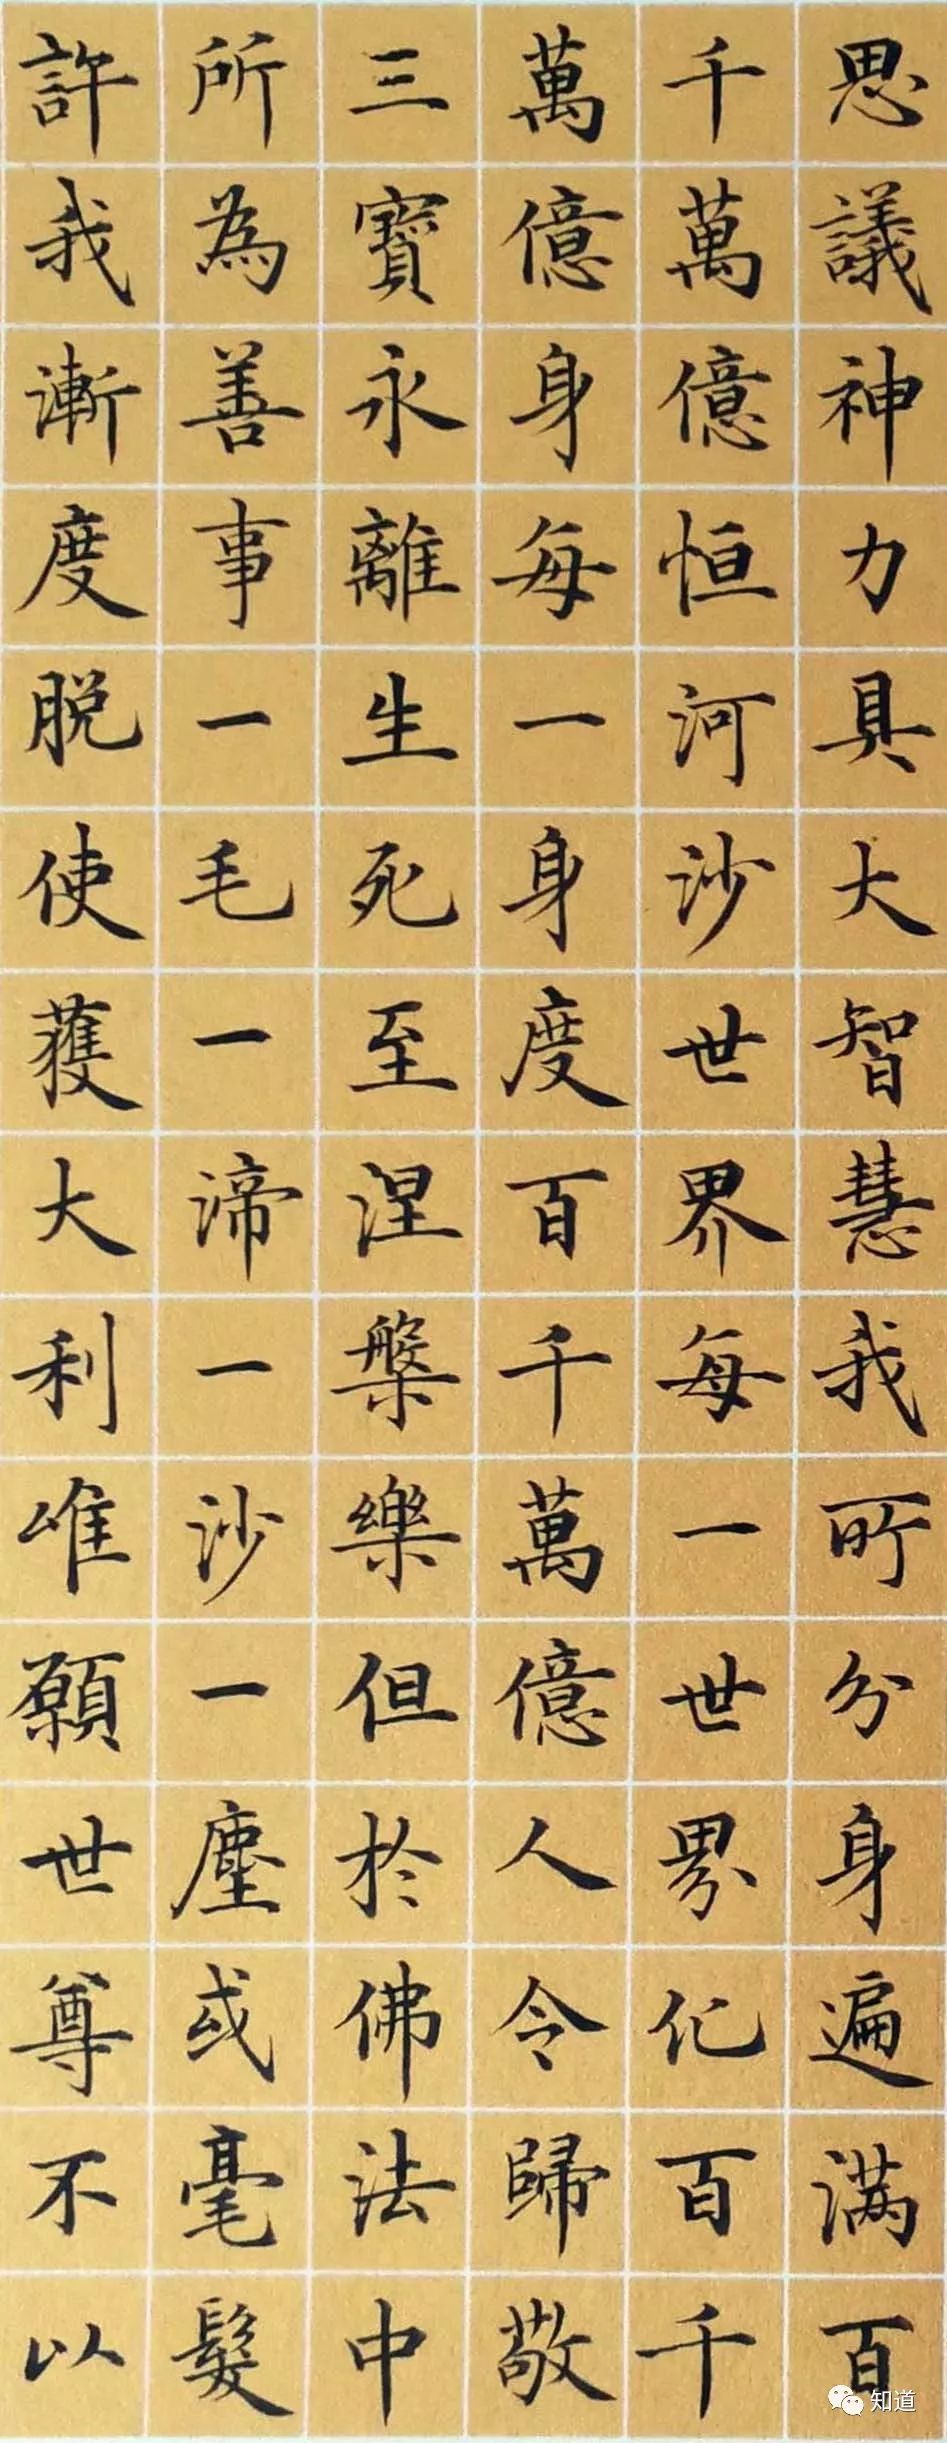 思議神力具大智慧我所分身遍满百
千萬億恒河沙世界每一世界化百千
萬億身每一身度百千萬億人令歸敬
三寶永離生死至涅槃樂但於佛法中
所為善事一毛一渧一沙一塵或毫髮
許我漸度脱使獲大利唯願世尊不以
知道